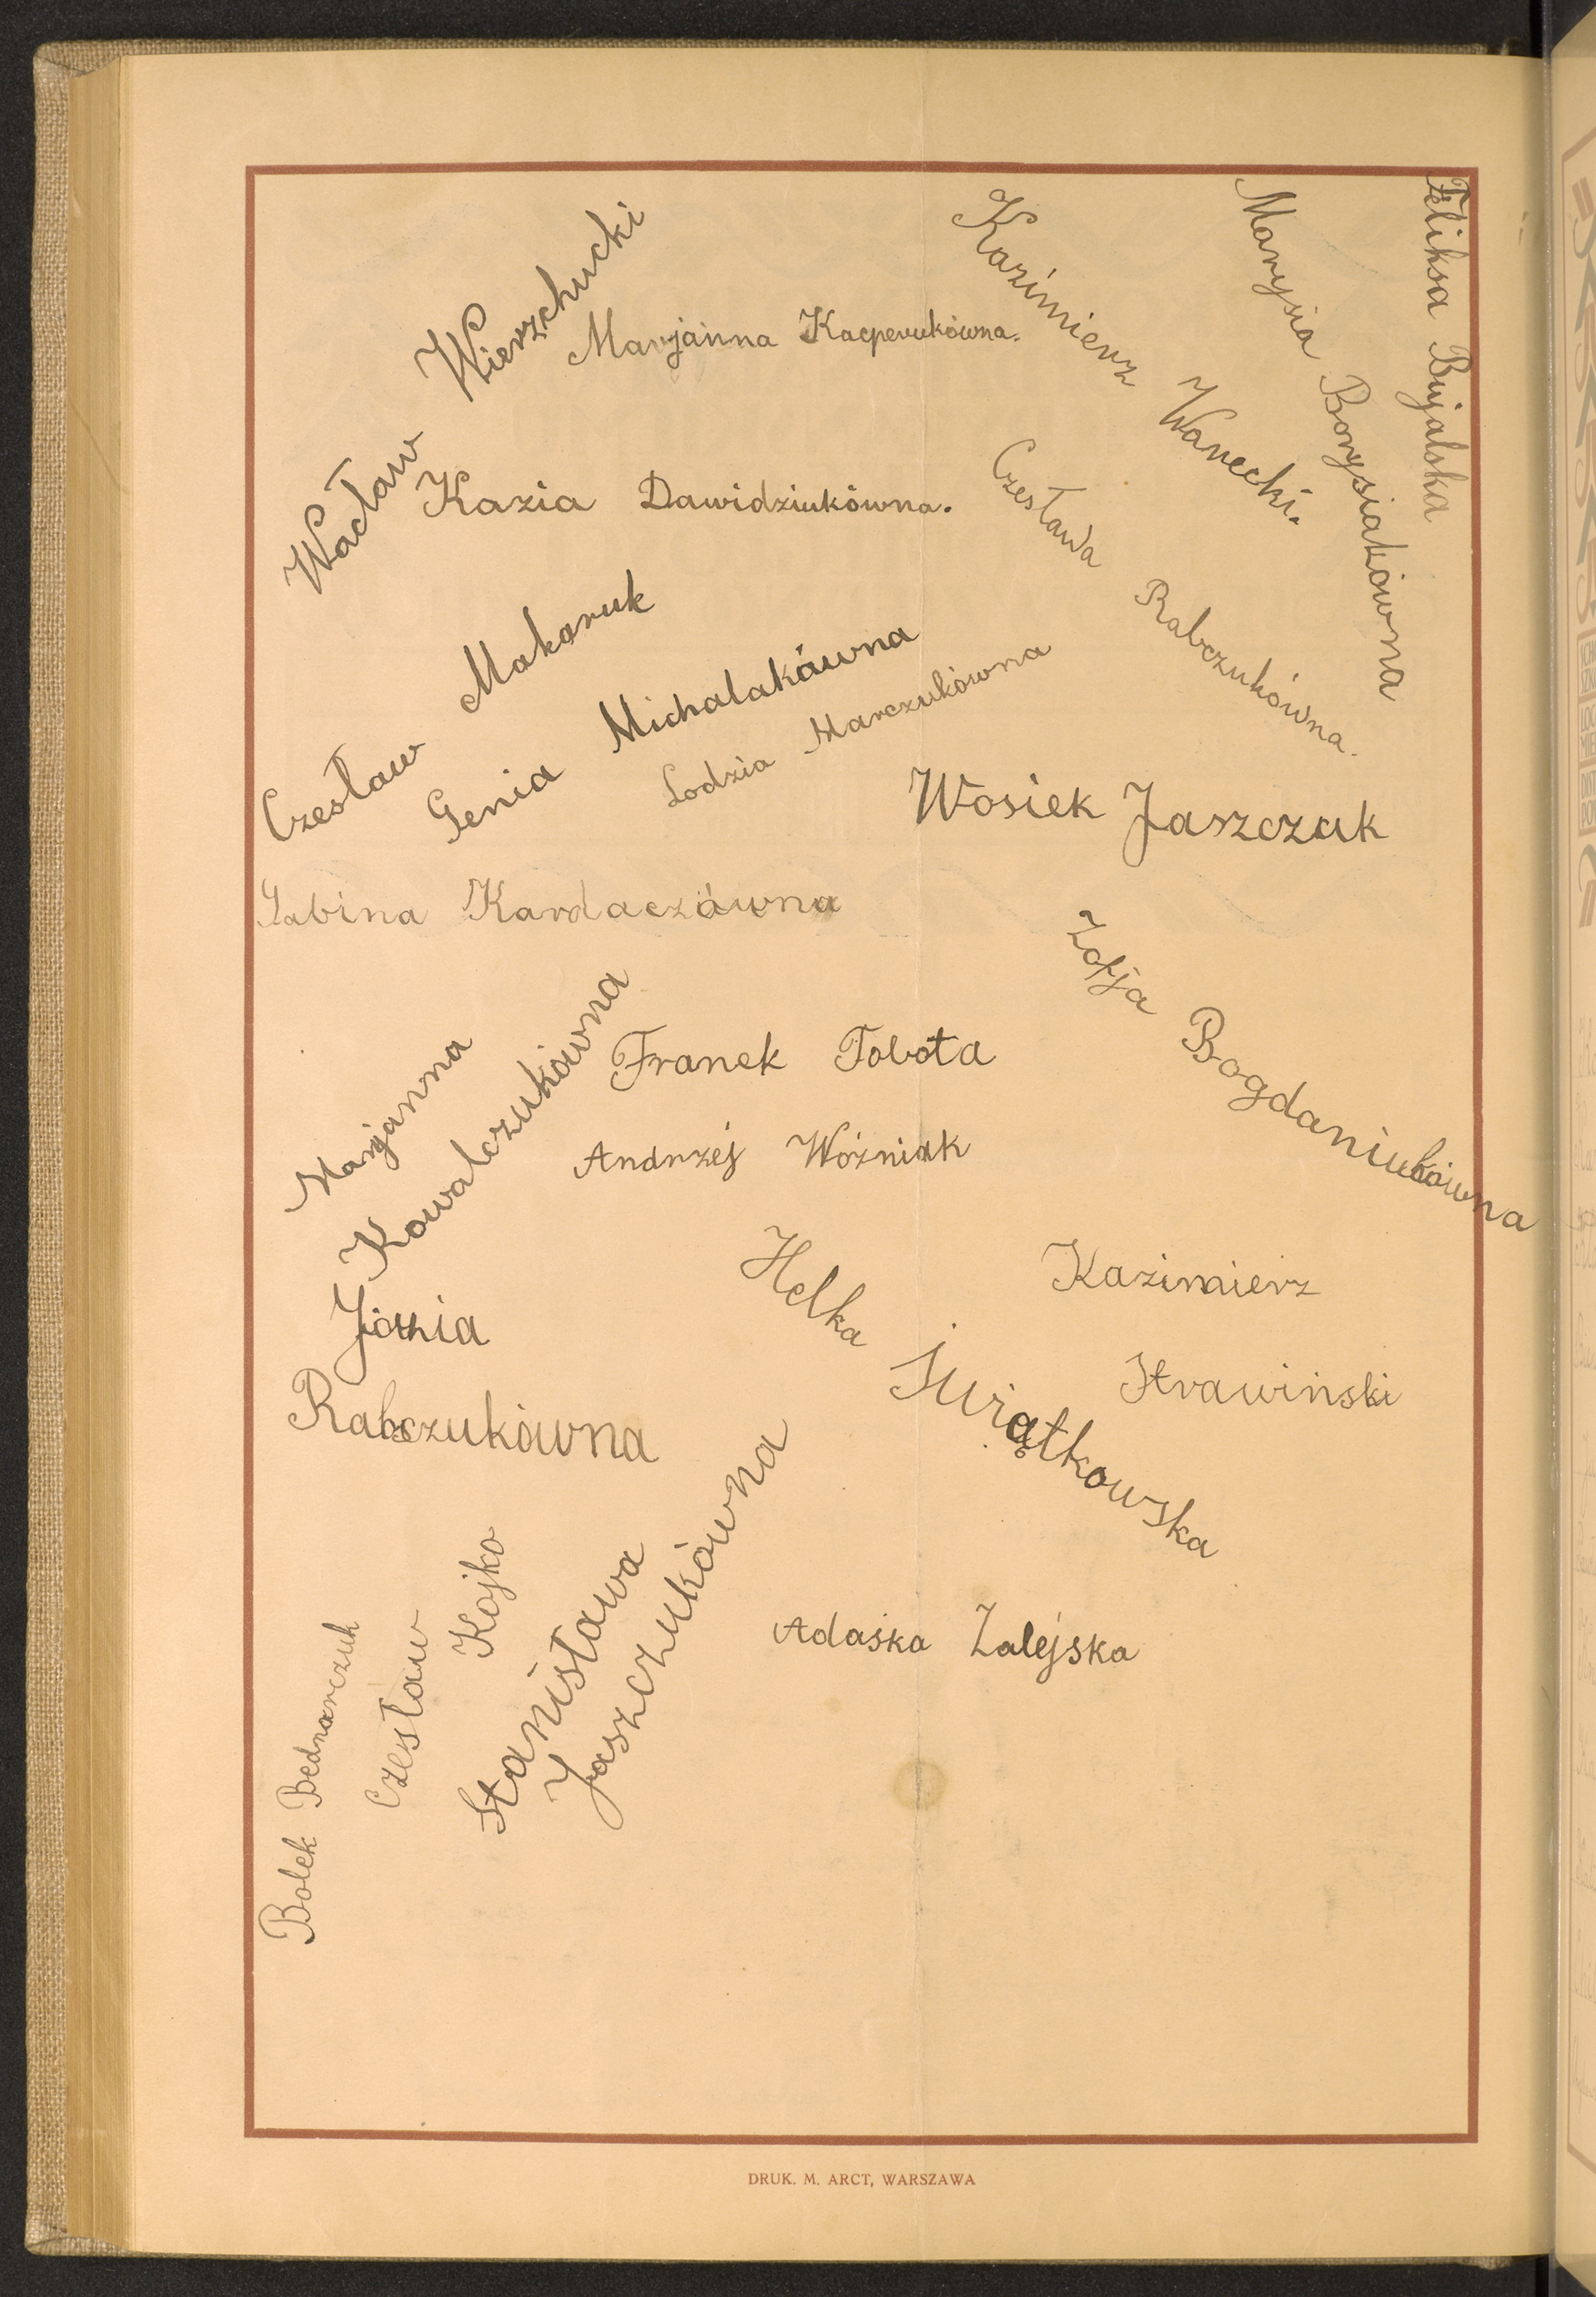 Wacław Wierzchucki
Marjanna Kacperukówna.
Kazimierz Warecki.
Marysia Borysiakówna
Feliksa Bujalska
Kazia Dawidziukówna.
Czesława Rabczukówna.
Czesław Makaruk
Genia Michalakówna
Lodzia Marczukówna
Wosiek Jaszczak
Sabina Kardaczówna
Zofja Bogdaniukówna
Marjanna
Kowalczukówna
Franek Tobota
Andrzéj Woźniak
Józia
Rabczukówna
Helka Świątkowska
Kazimierz
Strawiński
Bolek Bednarczuk
Czesław Kojko
Stanisława
Jaszczukówna
Adaśka Zalejska
DRUK. M. ARCT, WARSZAWA